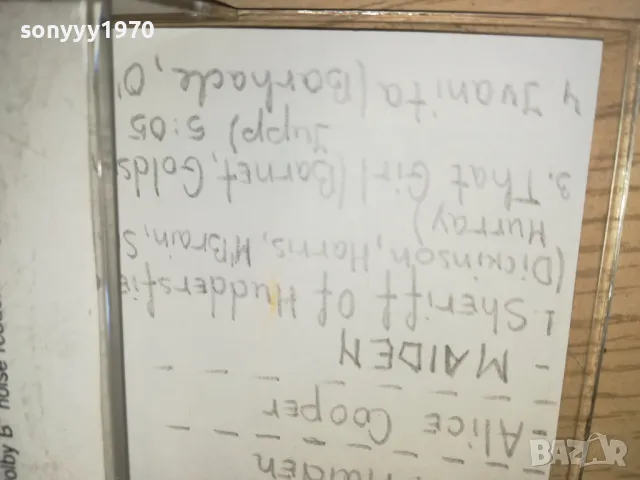 sonyyy1970
- Alice Cooper
- MAIDEN
1. Sheriff Of Huddersfie
(Dickinson, Harris, M'Brain, S
Murray)
3. That Girl (Barnet, Golds
Jupp) 5:05
4 Juanita (Barnacle, O'
olby B noise
BAZAR